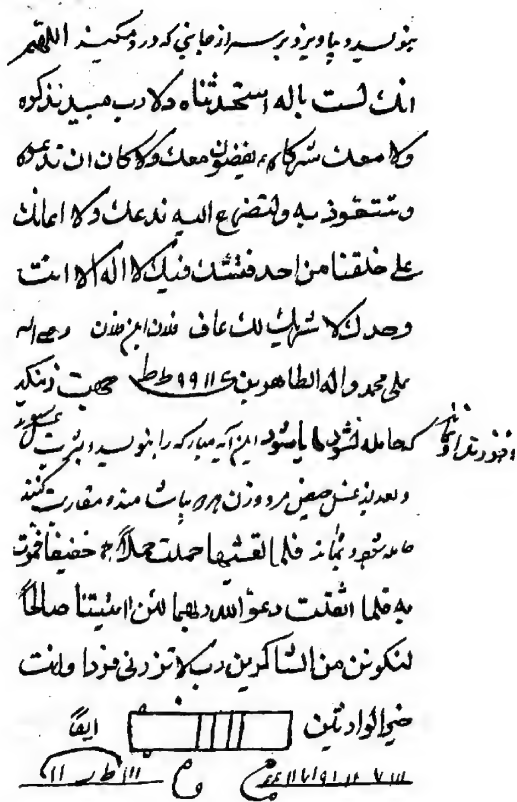 بنویسد و بیاویزد بر سر از جانبی که درد میکند اللهم
انك لست باله استحدثناه ولا رب مبید نذکره
ولا معك شرکاء یقضون معك ولا کان ان ندعوه
ونتعوذ به ونتضرع الیه ندعك ولا اعانك
علی خلقنا من احد فنشك فیك لا اله الا انت
وحدك لا شریك لك عاف فلان ابن فلان وصلی الله
علی محمد واله الطاهرین ۹۹۱۱ ط ط جهت زنیکه
که حامله نشود یا بشود این آیه مبارکه را بنویسد و بشربت
وبعد از غسل حیض مرد و زن بیاشامند و مقاربت کنند
حامله شود فلما تغشیها حملت حملاً خفیفا فمرت
به فلما اثقلت دعوالله ربهما لئن اتیتنا صالحاً
لنکونن من الشاکرین رب لا تذرنی فردا وانت
خیر الوارثین ایضاً